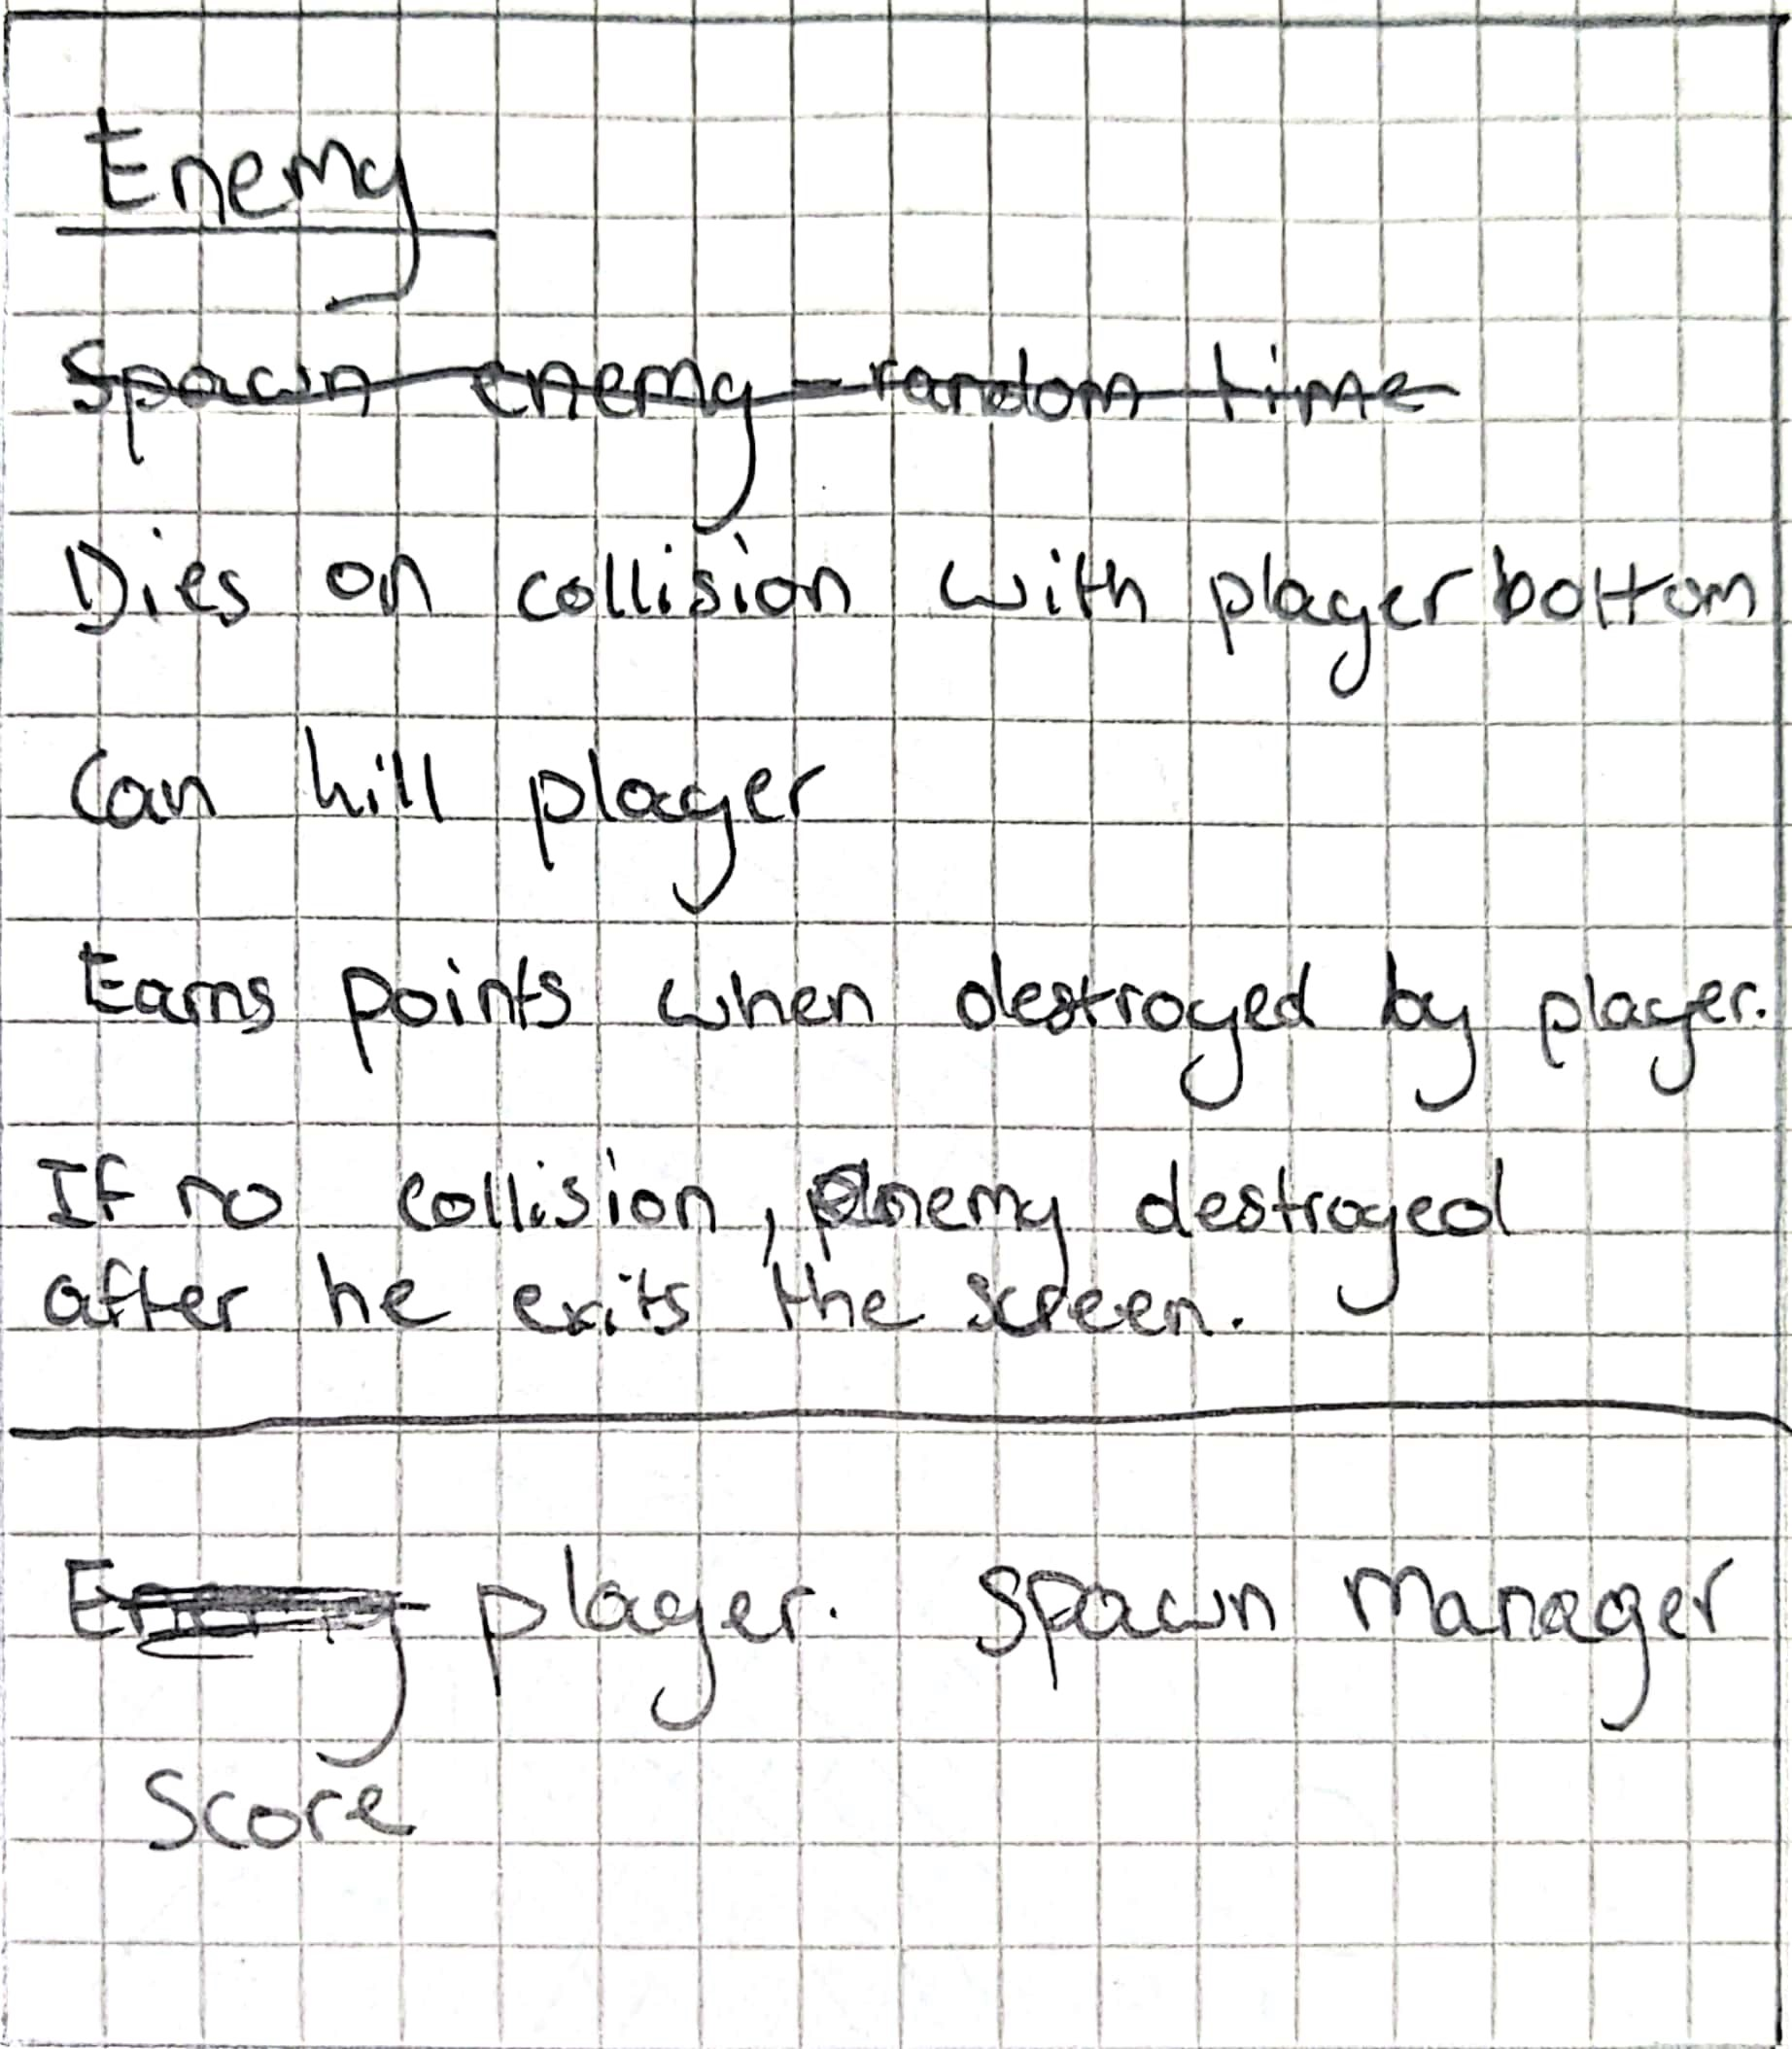 Enemy
Spawn enemy - random time
Dies on collision with player bottom
Can kill player
Earns points when destroyed by player.
If no collision, enemy destroyed
after he exits the screen.
Enemy player. Spawn Manager
Score